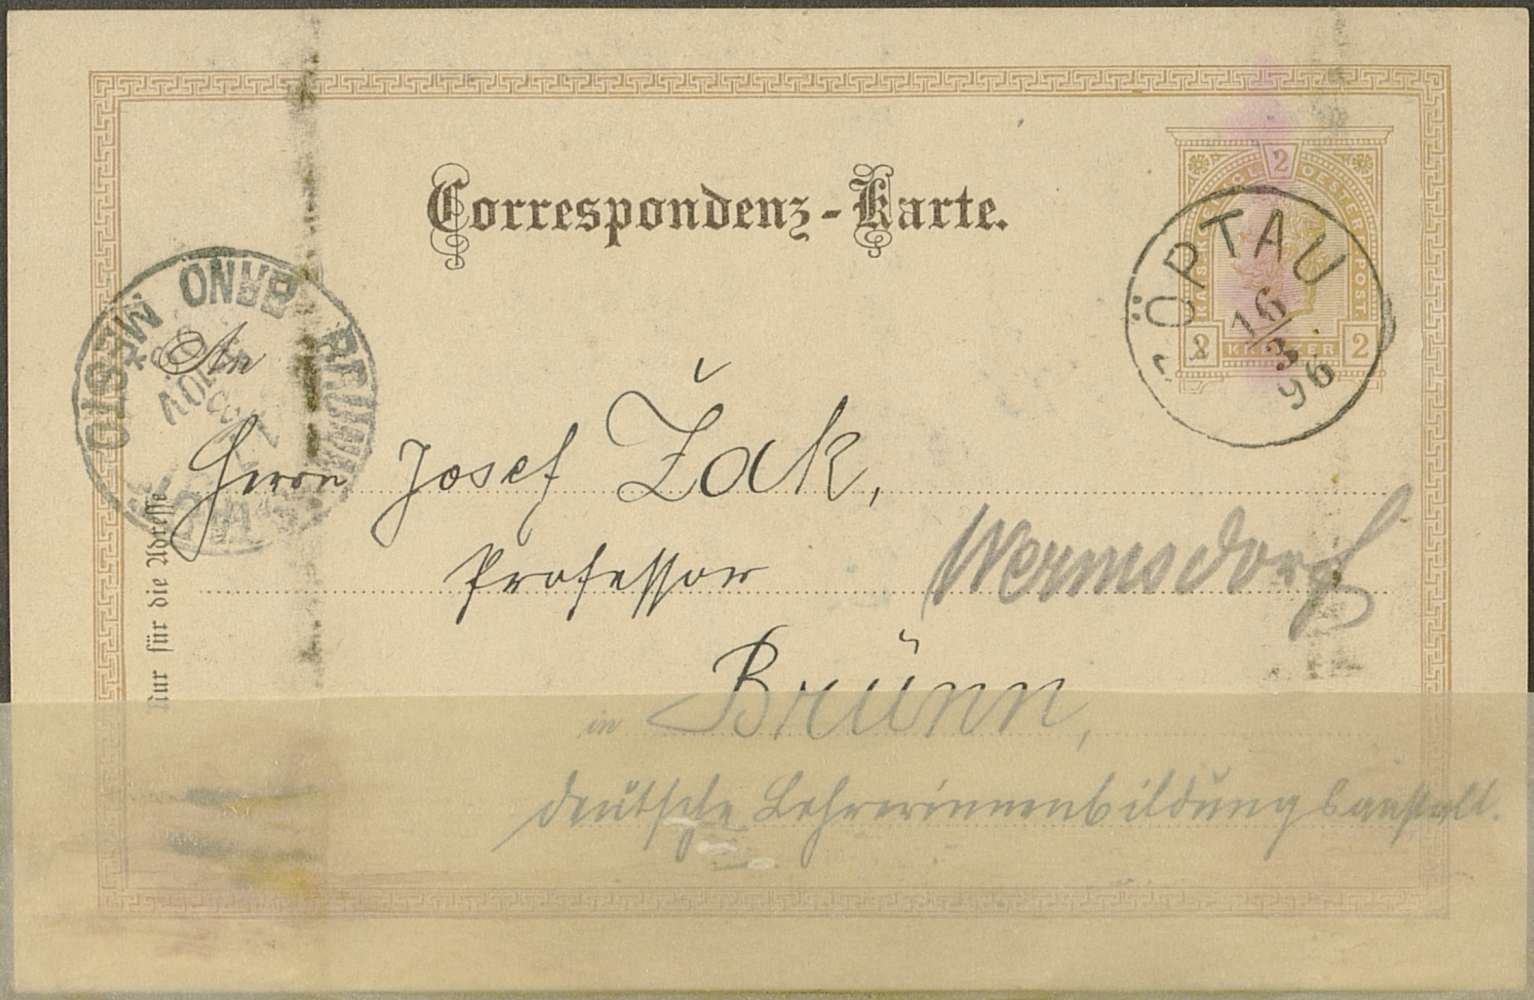 Correspondenz-Karte.
2
KAIS. KÖNIGL. OESTERR. POST.
2 KREUZER 2
ZÖPTAU
16/3
96
BRÜNN STADT
BRNO MĚSTO
An
Herrn Josef Žák,
Professor
Wermsdorf
in Brünn,
deutsche Lehrerinnenbildungsanstalt.
Nur für die Adresse